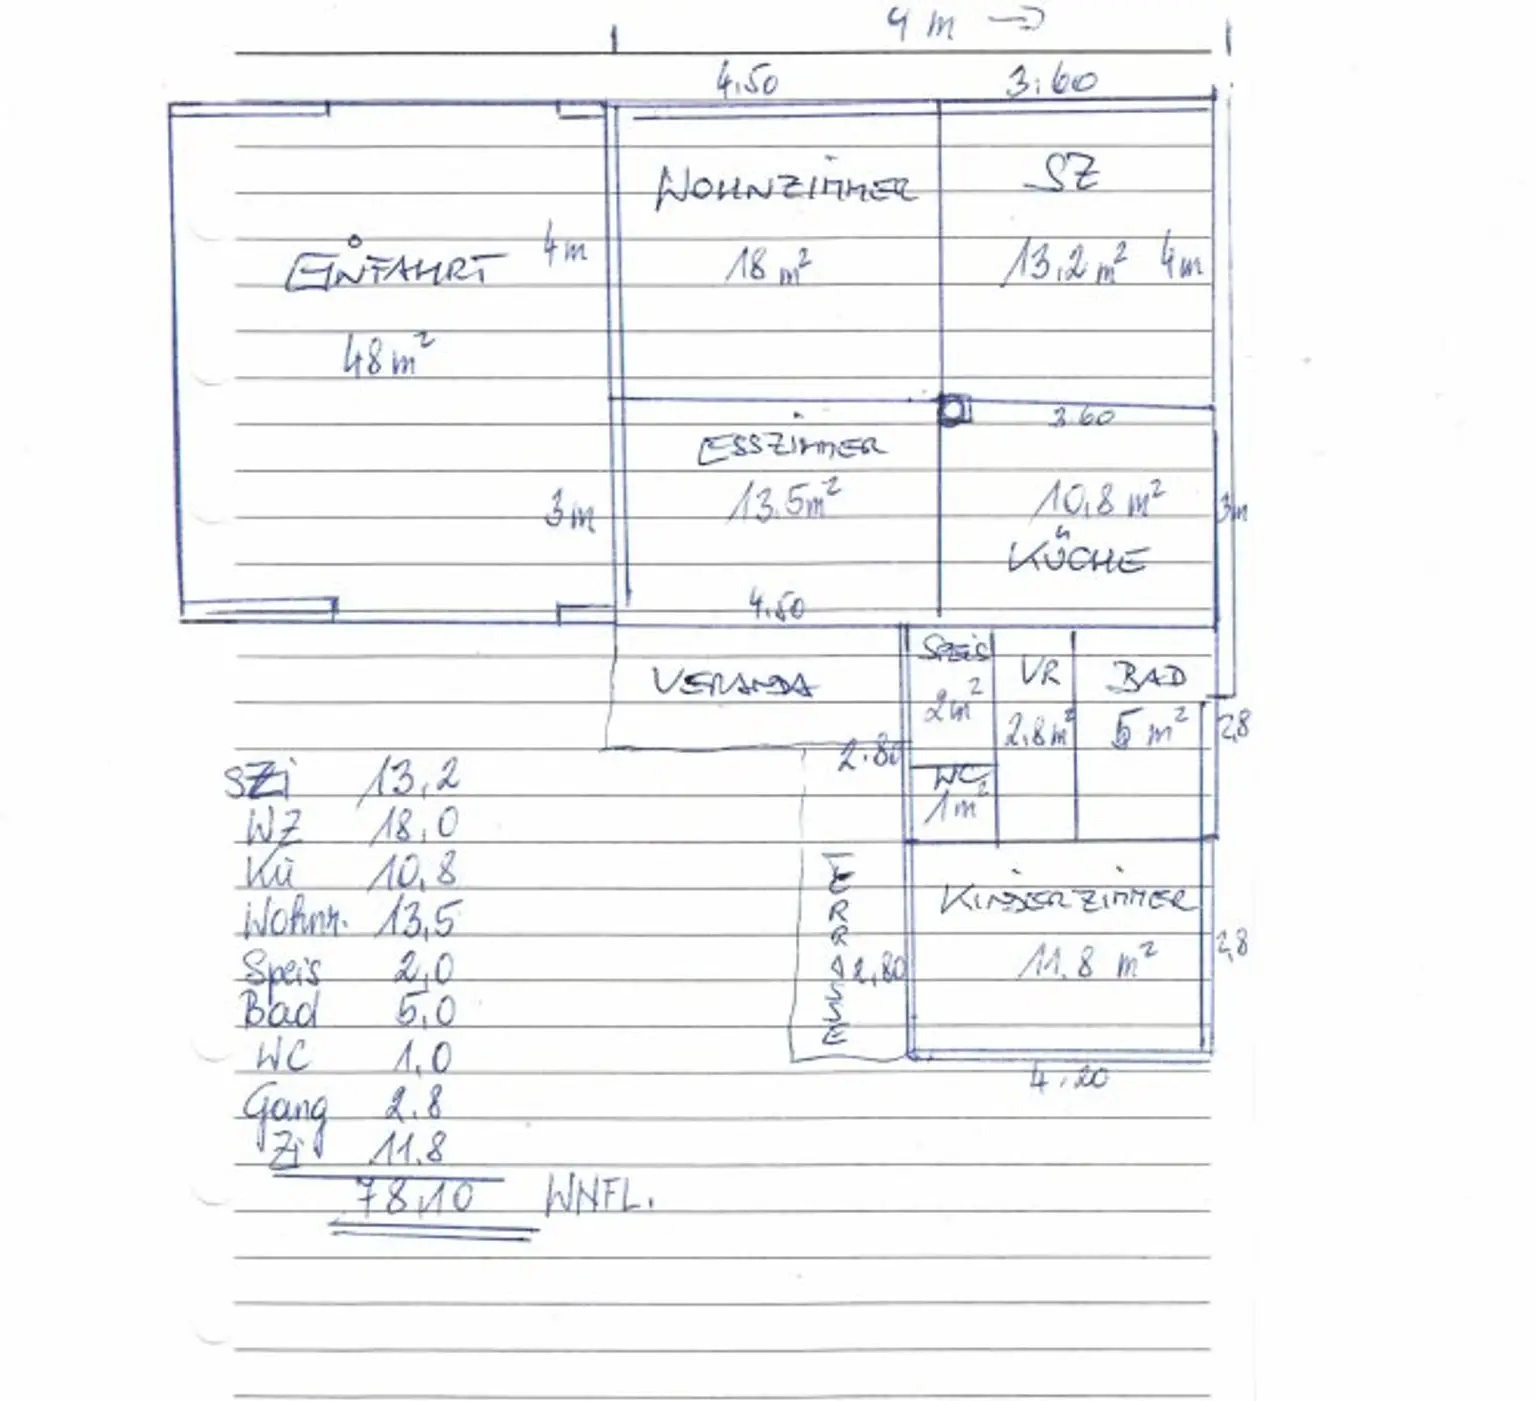 9 m →
4.50 3.60
WOHNZIMMER SZ
EINFAHRT 4m 18 m² 13,2 m² 4m
48 m²
3.60
ESSZIMMER
3m 13.5m² 10,8 m² 3m
KÜCHE
4.50
VERANDA SPEIS VR BAD
2m² 2,8m² 5 m² 2,8
2.80
WC
1m²
SZi 13,2
WZ 18,0
Kü 10,8
Wohnr. 13,5
Speis 2,0
Bad 5,0
WC 1,0
Gang 2.8
Zi 11.8
78,10 WNFL.
TERRASSE
KINDERZIMMER
2,80 11.8 m² 2,8
4.20